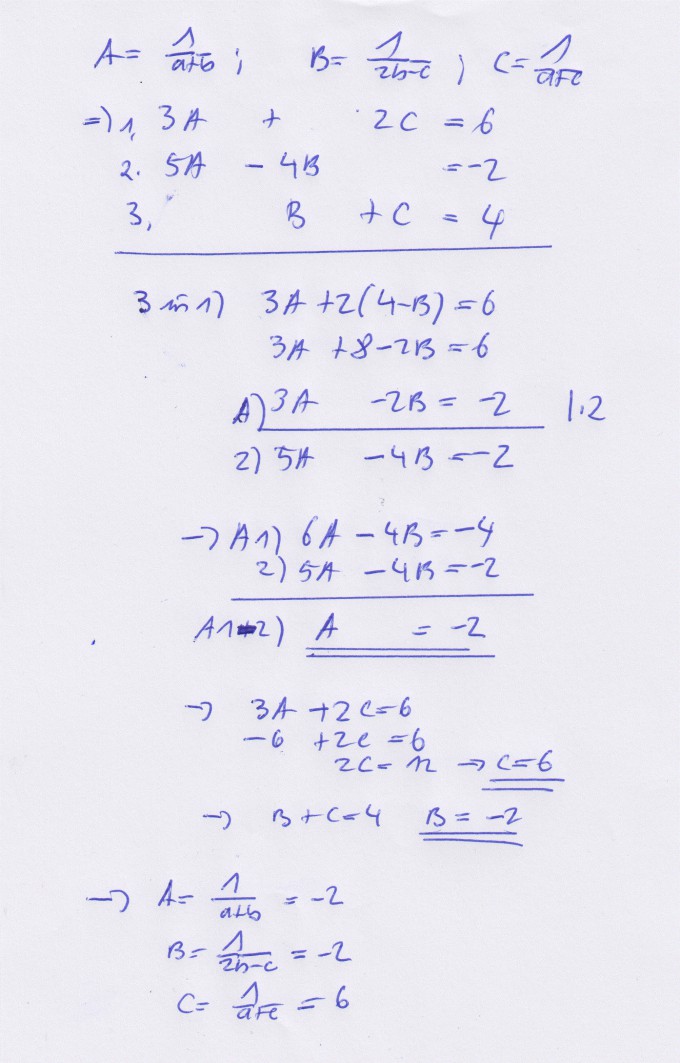 A= 1/(a+b) ; B= 1/(2b-c) ; C= 1/(a+c)
=> 1, 3A + 2C = 6
2. 5A - 4B = -2
3, B + C = 4
3 in 1) 3A + 2(4-B) = 6
3A + 8 - 2B = 6
A) 3A - 2B = -2 |·2
2) 5A - 4B = -2
-> A1) 6A - 4B = -4
2) 5A - 4B = -2
A1-2) A = -2
-> 3A + 2C = 6
-6 + 2C = 6
2C = 12 -> C = 6
-> B + C = 4 B = -2
-> A = 1/(a+b) = -2
B = 1/(2b-c) = -2
C = 1/(a+c) = 6